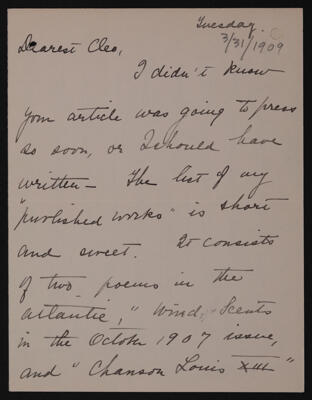 Tuesday.
3/31/1909
Dearest Cleo,
I didn't know
your article was going to press
so soon, or I should have
written - The list of my
"published works" is short
and sweet. It consists
of two poems in the
Atlantic, "Wind-Scents
in the October 1907 issue,
and "Chanson Louis XIII"